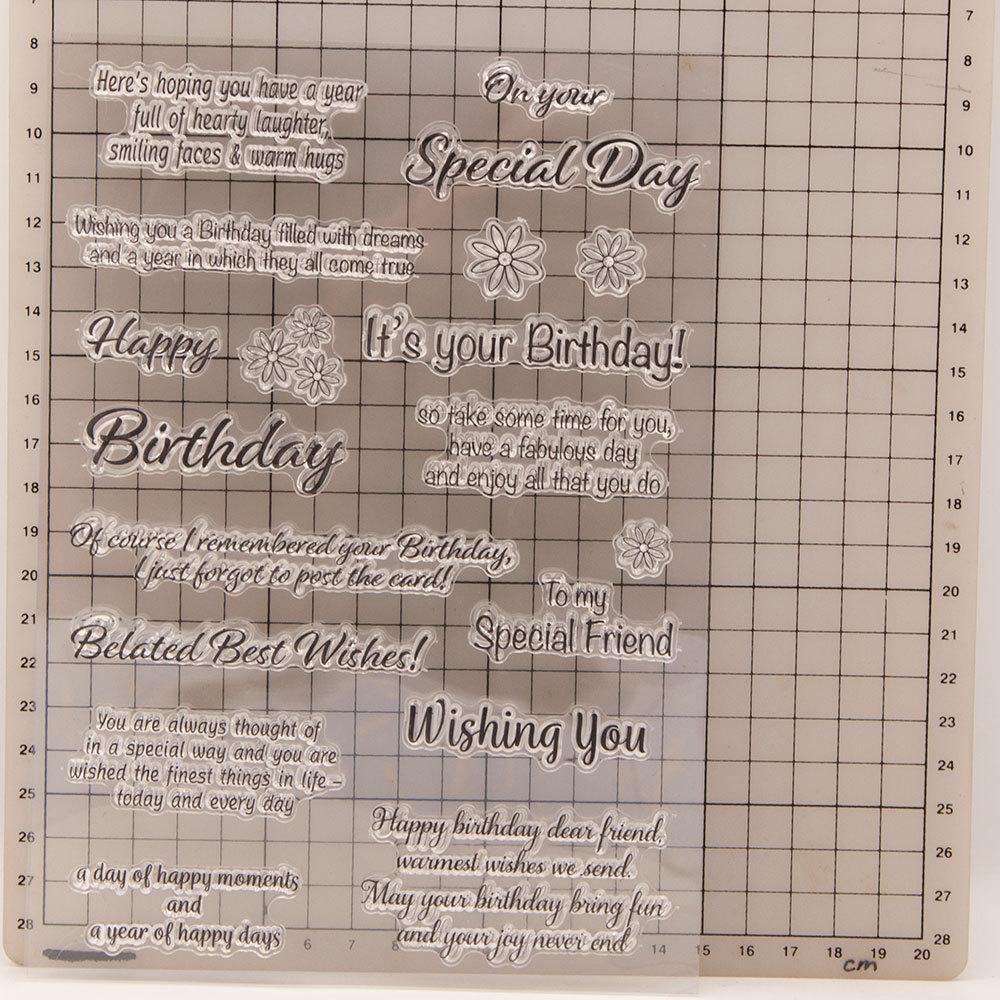 Here's hoping you have a year
full of hearty laughter,
smiling faces & warm hugs
On your
Special Day
Wishing you a Birthday filled with dreams
and a year in which they all come true
Happy
It's your Birthday!
Birthday
so take some time for you,
have a fabulous day
and enjoy all that you do
Of course I remembered your Birthday,
I just forgot to post the card!
To my
Special Friend
Belated Best Wishes!
Wishing You
You are always thought of
in a special way and you are
wished the finest things in life –
today and every day
Happy birthday dear friend,
warmest wishes we send.
May your birthday bring fun
and your joy never end
a day of happy moments
and
a year of happy days
8
9
10
11
12
13
14
15
16
17
18
19
20
21
22
23
24
25
26
27
28
7
8
9
10
11
12
13
14
15
16
17
18
19
20
21
22
23
24
25
26
27
28
6 7 8 14 15 16 17 18 19 20
cm